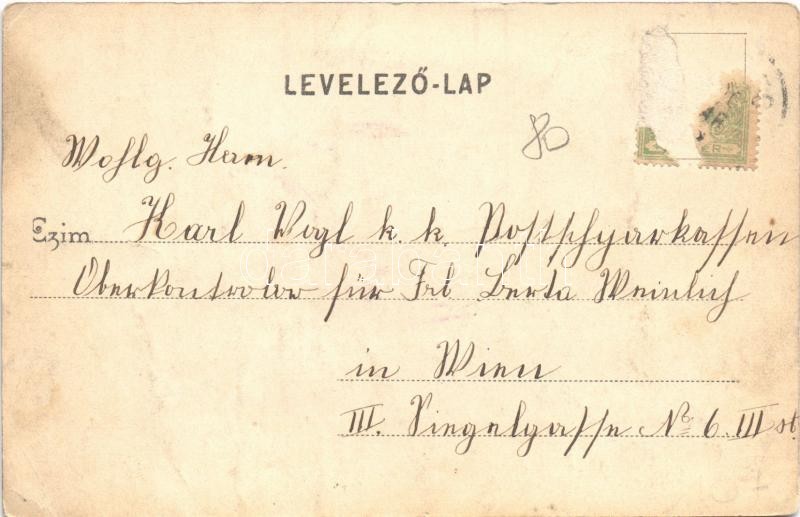 LEVELEZŐ-LAP
80
Wohlg. Herrn
Czim Karl Vogl k. k. Postsparkassen
Oberkontrolor für Frl Berta Weinlich
in Wien
III. Siegelgasse No 6. III st.